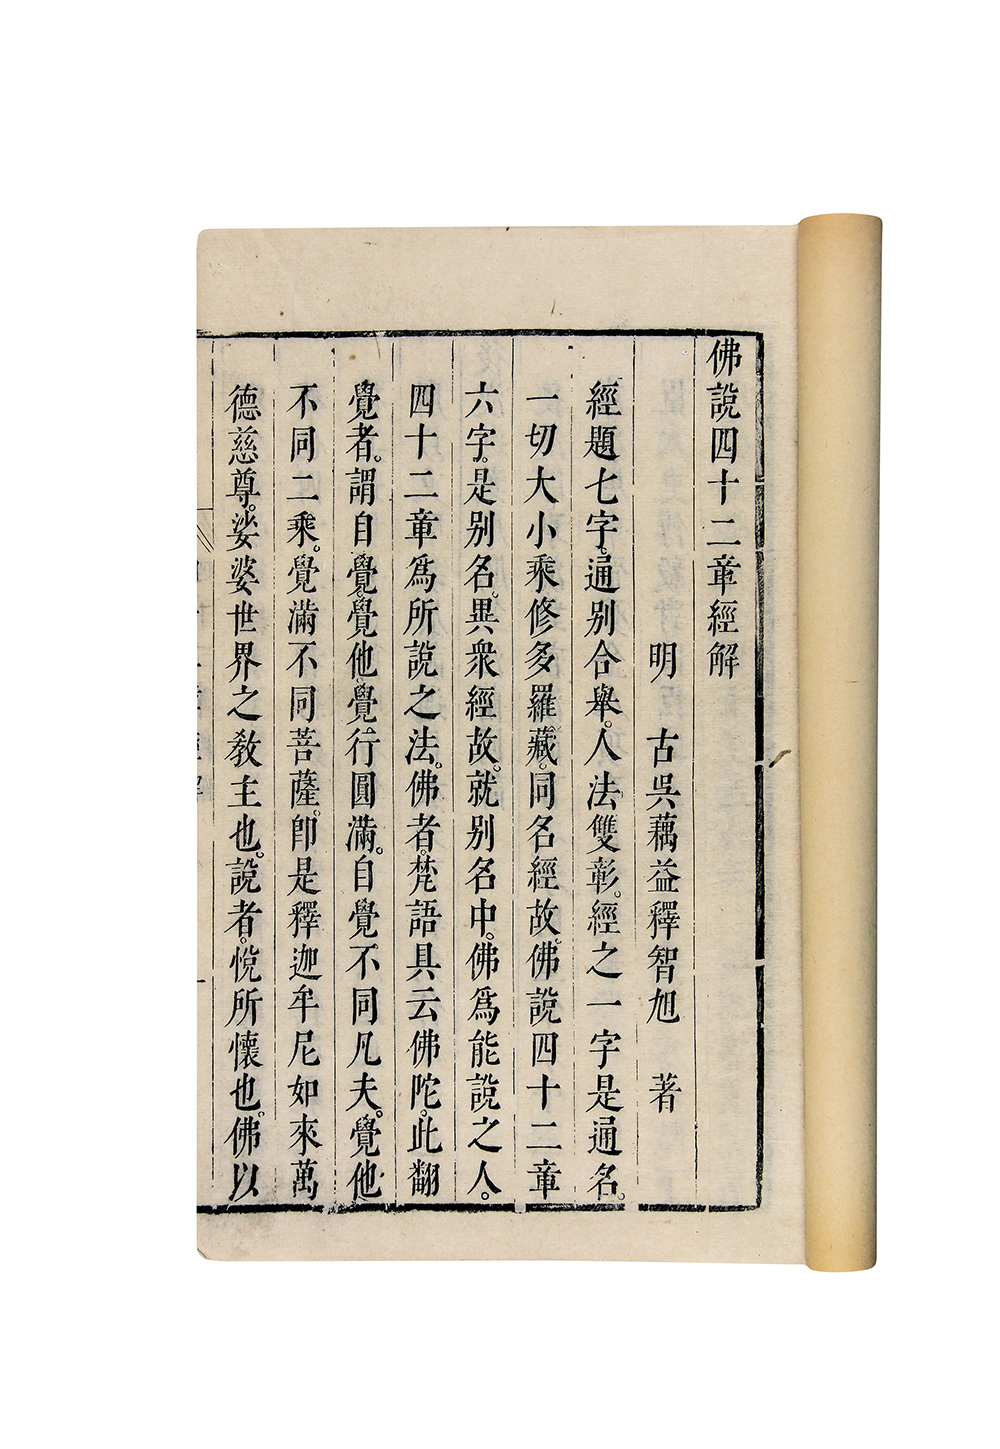 佛說四十二章經解
明　古吳蕅益釋智旭　著
經題七字。通別合舉。人法雙彰。經之一字是通名。
一切大小乘修多羅藏。同名經故。佛說四十二章
六字。是別名。異衆經故。就別名中。佛爲能說之人。
四十二章爲所說之法。佛者。梵語具云佛陀。此翻
覺者。謂自覺。覺他。覺行圓滿。自覺不同凡夫。覺他
不同二乘。覺滿不同菩薩。卽是釋迦牟尼如來萬
德慈尊。娑婆世界之敎主也。說者。悅所懷也。佛以